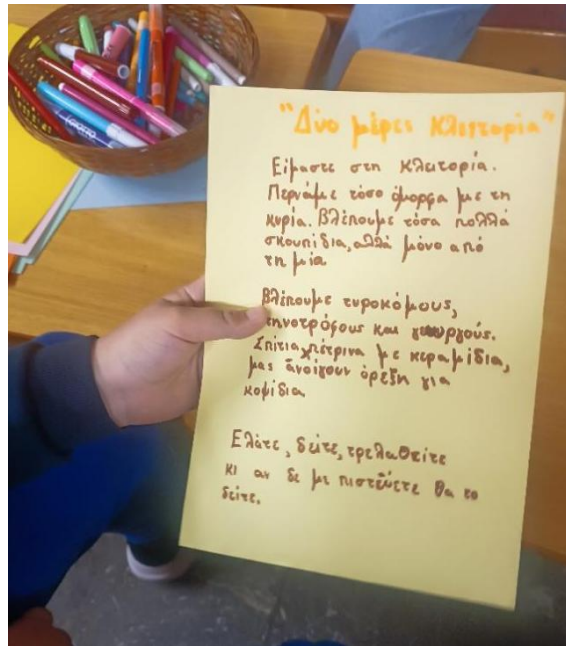 "Δύο μέρες Κλειτορία"
Είμαστε στη Κλειτορία.
Περνάμε τόσο όμορφα με τη
κυρία. Βλέπουμε τόσα πολλά
σκουπίδια, αλλά μόνο από
τη μία
Βλέπουμε τυροκόμους,
κτηνοτρόφους και γεωργούς.
Σπίτια πέτρινα με κεραμίδια,
μας άνοίγουν όρεξη για
κοψίδια
Ελάτε, δείτε, τρελαθείτε
κι αν δε με πιστεύετε θα το
δείτε.